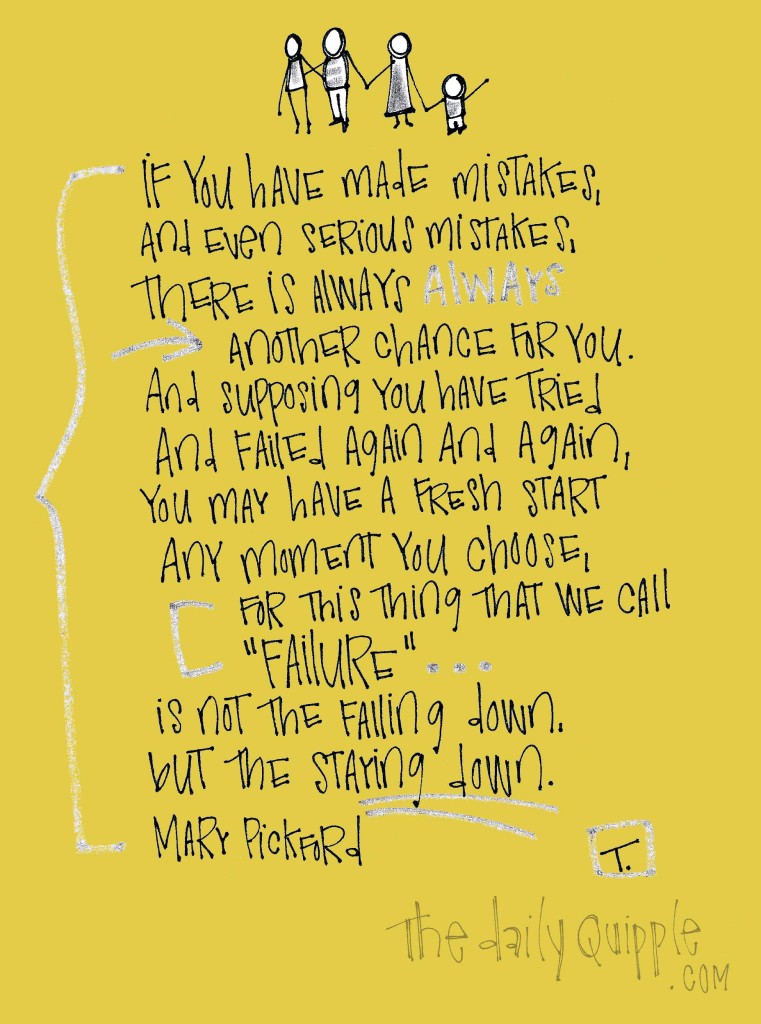 IF YOU HAVE MADE MISTAKES,
AND EVEN SERIOUS MISTAKES,
THERE IS ALWAYS ALWAYS
ANOTHER CHANCE FOR YOU.
AND SUPPOSING YOU HAVE TRIED
AND FAILED AGAIN AND AGAIN,
YOU MAY HAVE A FRESH START
ANY MOMENT YOU CHOOSE,
FOR THIS THING THAT WE CALL
"FAILURE"...
IS NOT THE FALLING DOWN.
BUT THE STAYING DOWN.
MARY PICKFORD
T.
The daily Quipple
.COM